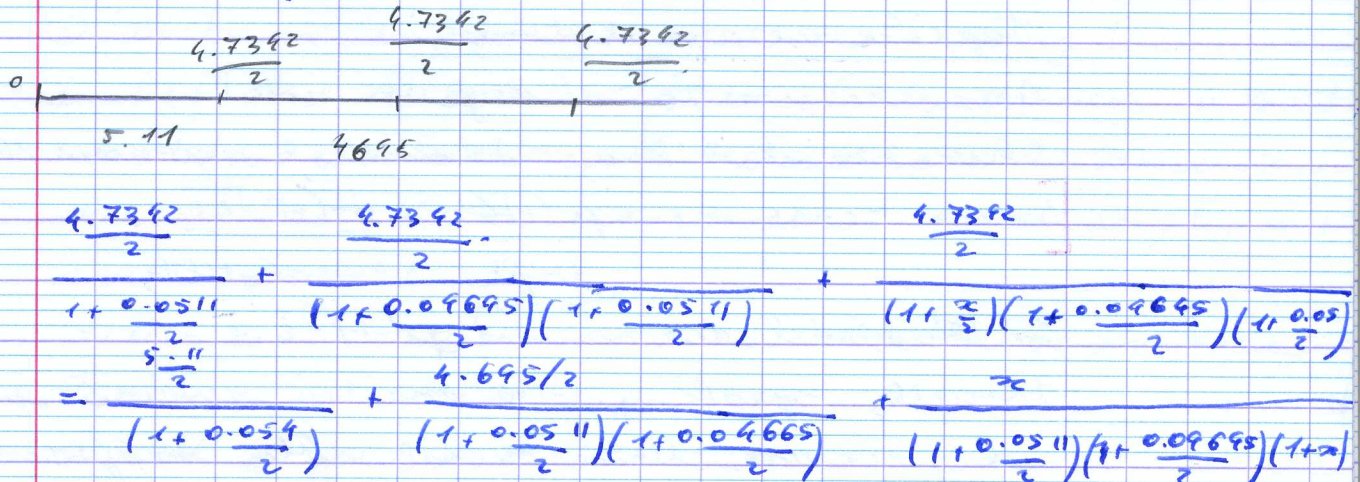 4.7342/2 4.7342/2 4.7342/2
0
5.11 4695
(4.7342/2)/(1+0.0511/2) + (4.7342/2)/((1+0.04695/2)(1+0.0511/2)) + (4.7342/2)/((1+x/2)(1+0.04695/2)(1+0.05/2)
= (5.11/2)/(1+0.054/2) + (4.695/2)/((1+0.0511/2)(1+0.04665/2)) + x/((1+0.0511/2)(1+0.04695/2)(1+x)